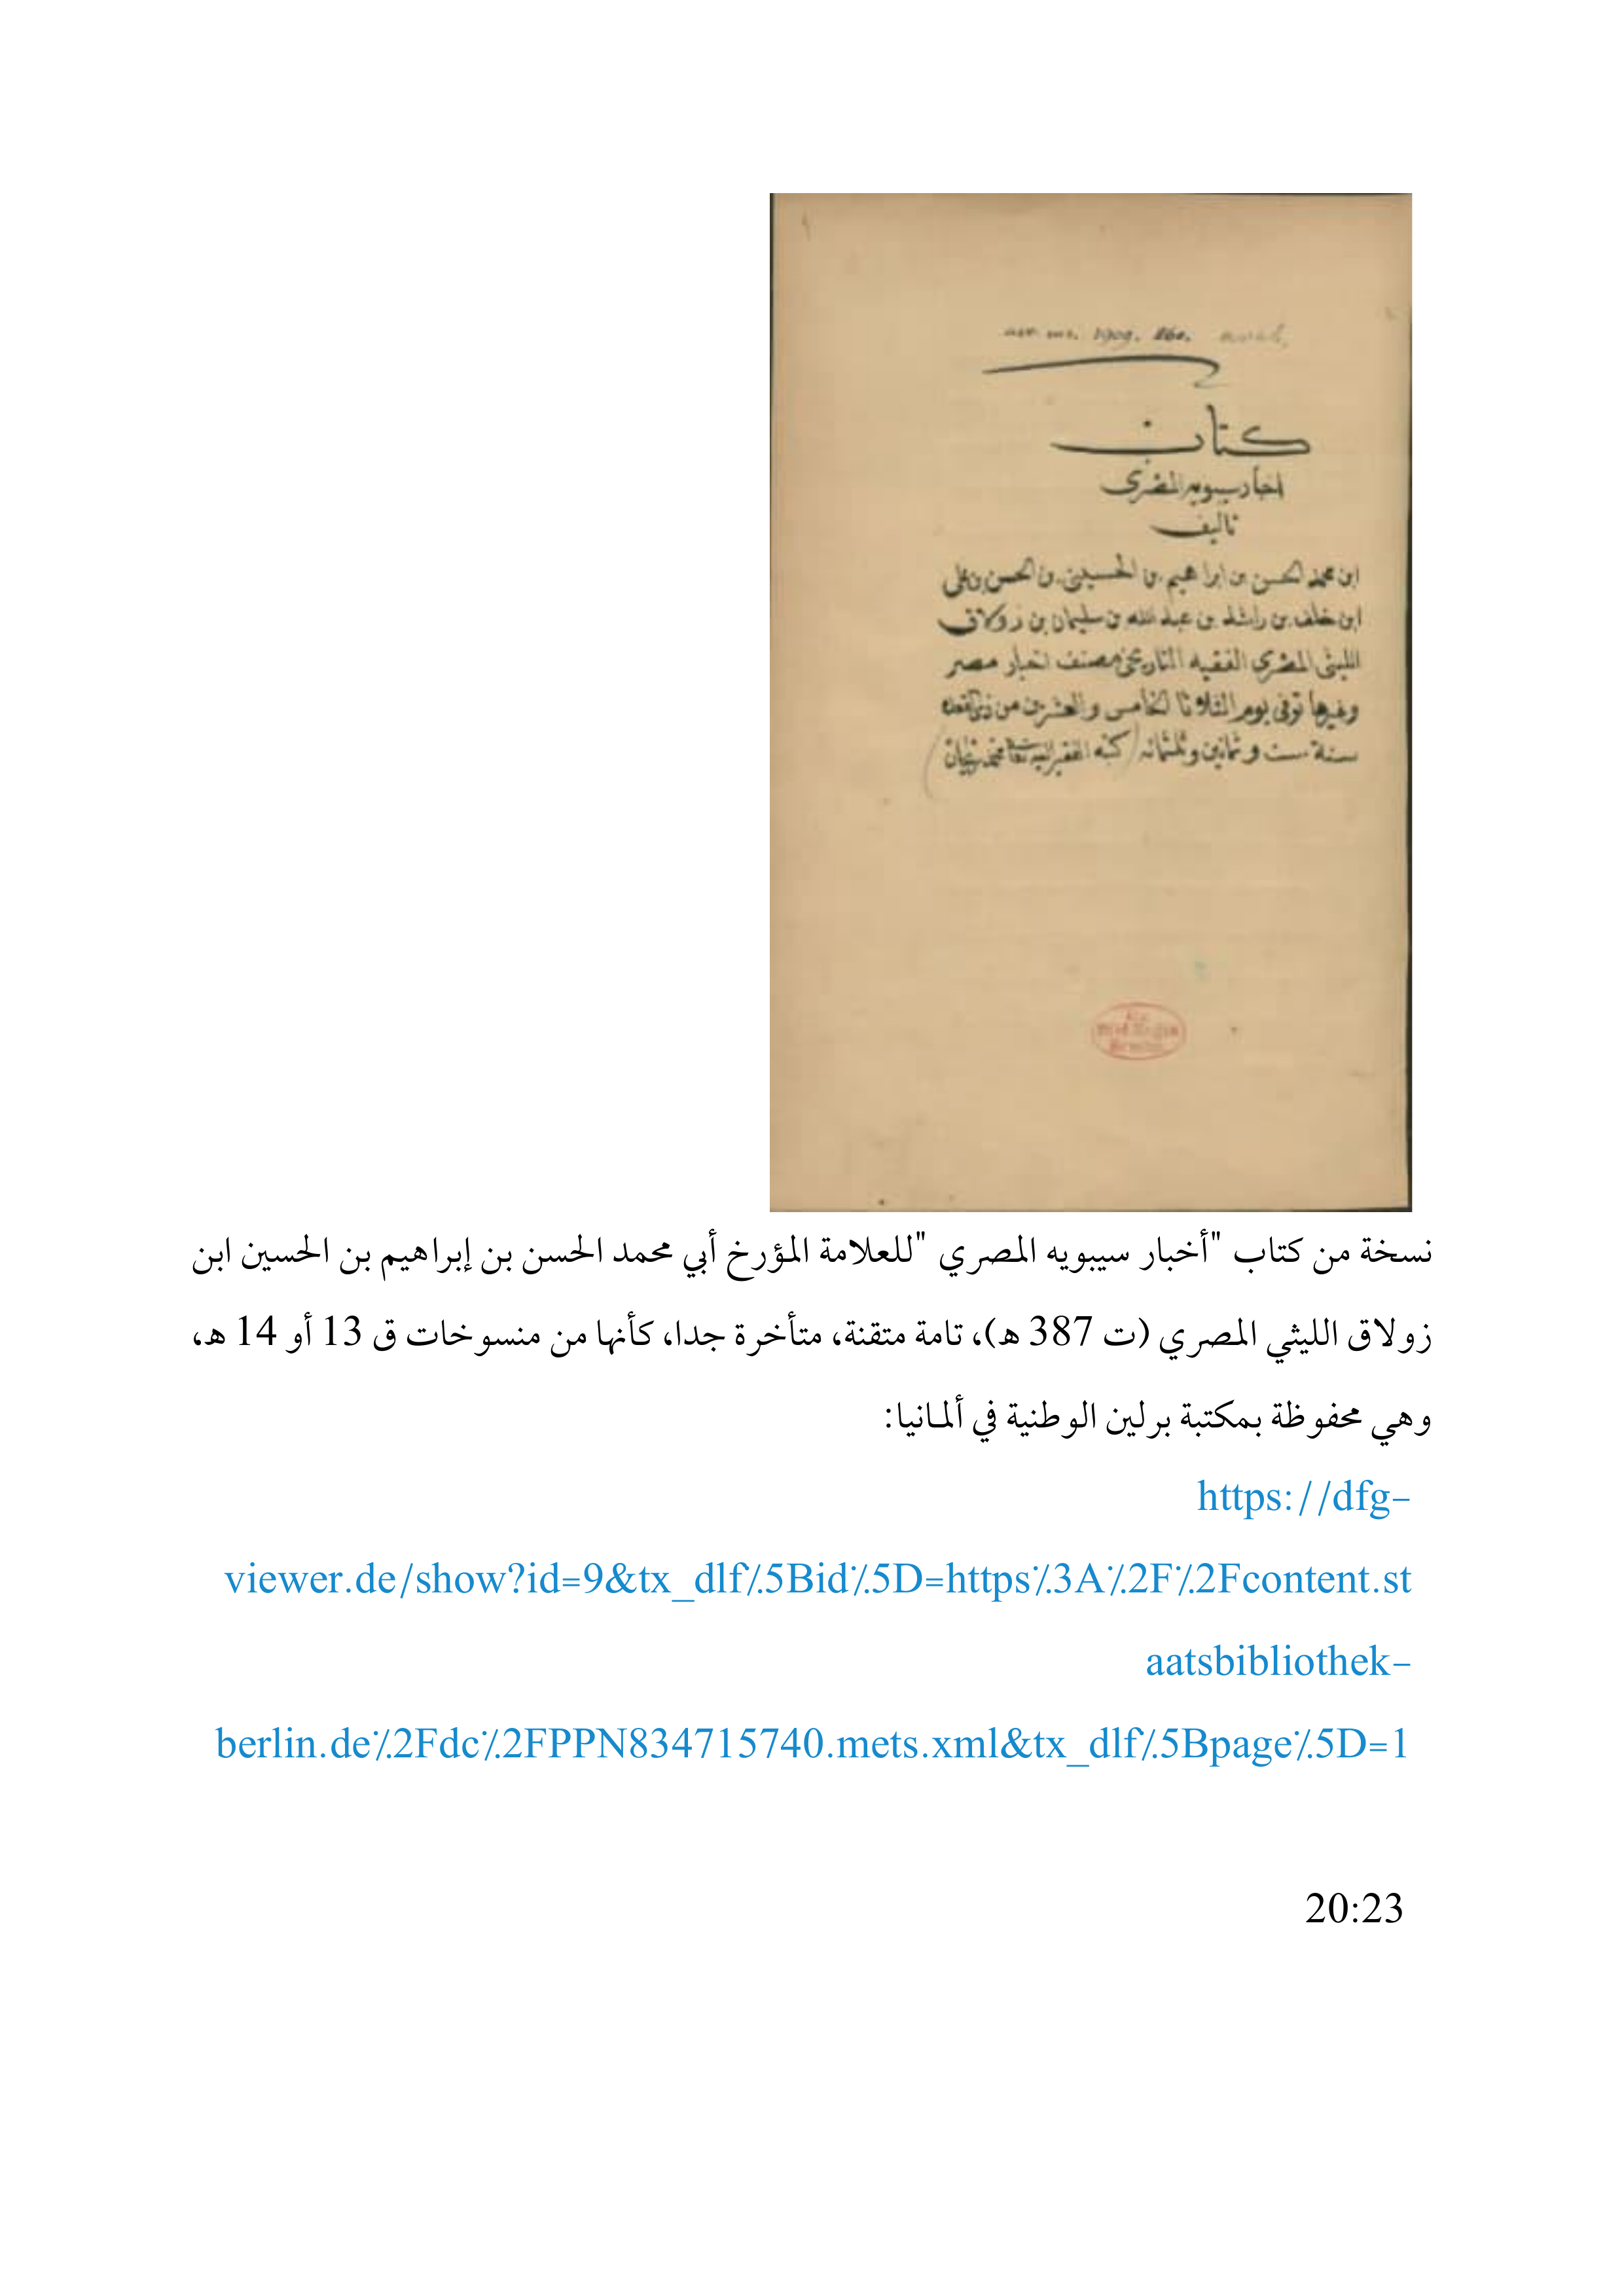 acc. ms. 1909. 260.
كتاب
اخبار سيبويه المصرى
تاليف
ابن محمد الحسن بن ابراهيم بن الحسينى بن الحسن بن على
ابن خلف بن راشد بن عبد الله بن سليمان بن زولاق
الليثى المصرى الفقيه التاريخى مصنف اخبار مصر
وغيرها توفى يوم الثلاثا الخامس والعشرين من ذى القعده
سنة ست وثمانين وثلثمائه (كتبه الفقير اليه تعالى محمد
نسخة من كتاب "أخبار سيبويه المصري "للعلامة المؤرخ أبي محمد الحسن بن إبراهيم بن الحسين ابن
زولاق الليثي المصري (ت 387 هـ)، تامة متقنة، متأخرة جدا، كأنها من منسوخات ق 13 أو 14 هـ،
وهي محفوظة بمكتبة برلين الوطنية في ألمانيا:
https://dfg-
viewer.de/show?id=9&tx_dlf٪5Bid٪5D=https٪3A٪2F٪2Fcontent.st
aatsbibliothek-
berlin.de٪2Fdc٪2FPPN834715740.mets.xml&tx_dlf٪5Bpage٪5D=1
20:23